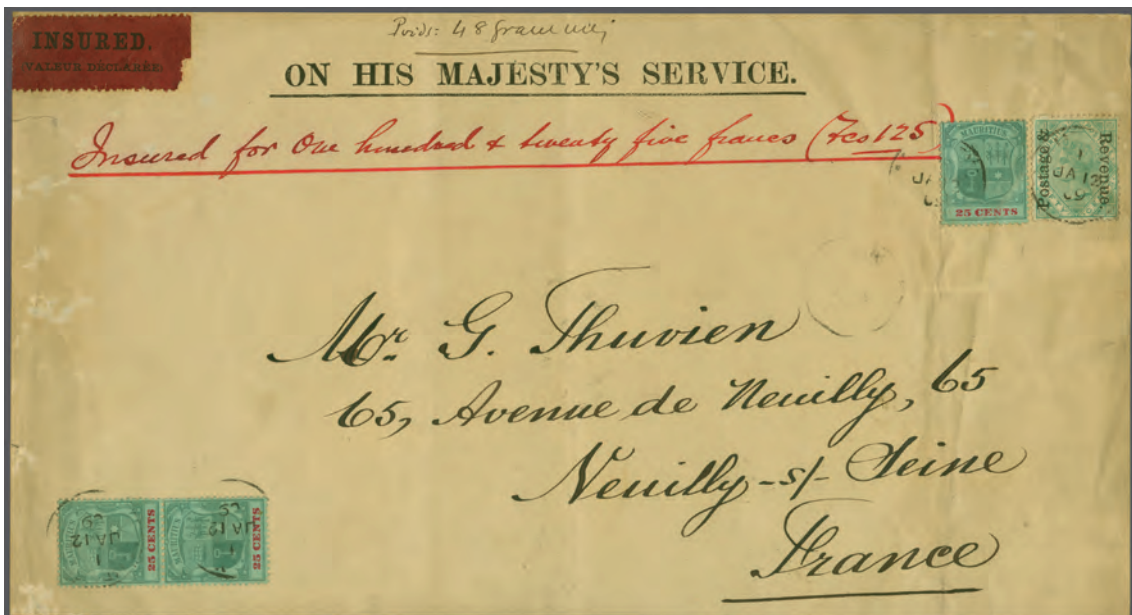 INSURED.
(VALEUR DÉCLARÉE)
Poids: 48 grammes
ON HIS MAJESTY'S SERVICE.
Insured for One hundred & twenty five francs (Fcs 125)
MAURITIUS
25 CENTS
Postage &
Revenue.
JA 12
09
JA
Mr. G. Thuvien
65, Avenue de Neuilly, 65
Neuilly-s/- Seine
France
MAURITIUS
25 CENTS
1
JA 12
09
MAURITIUS
25 CENTS
1
JA 12
09